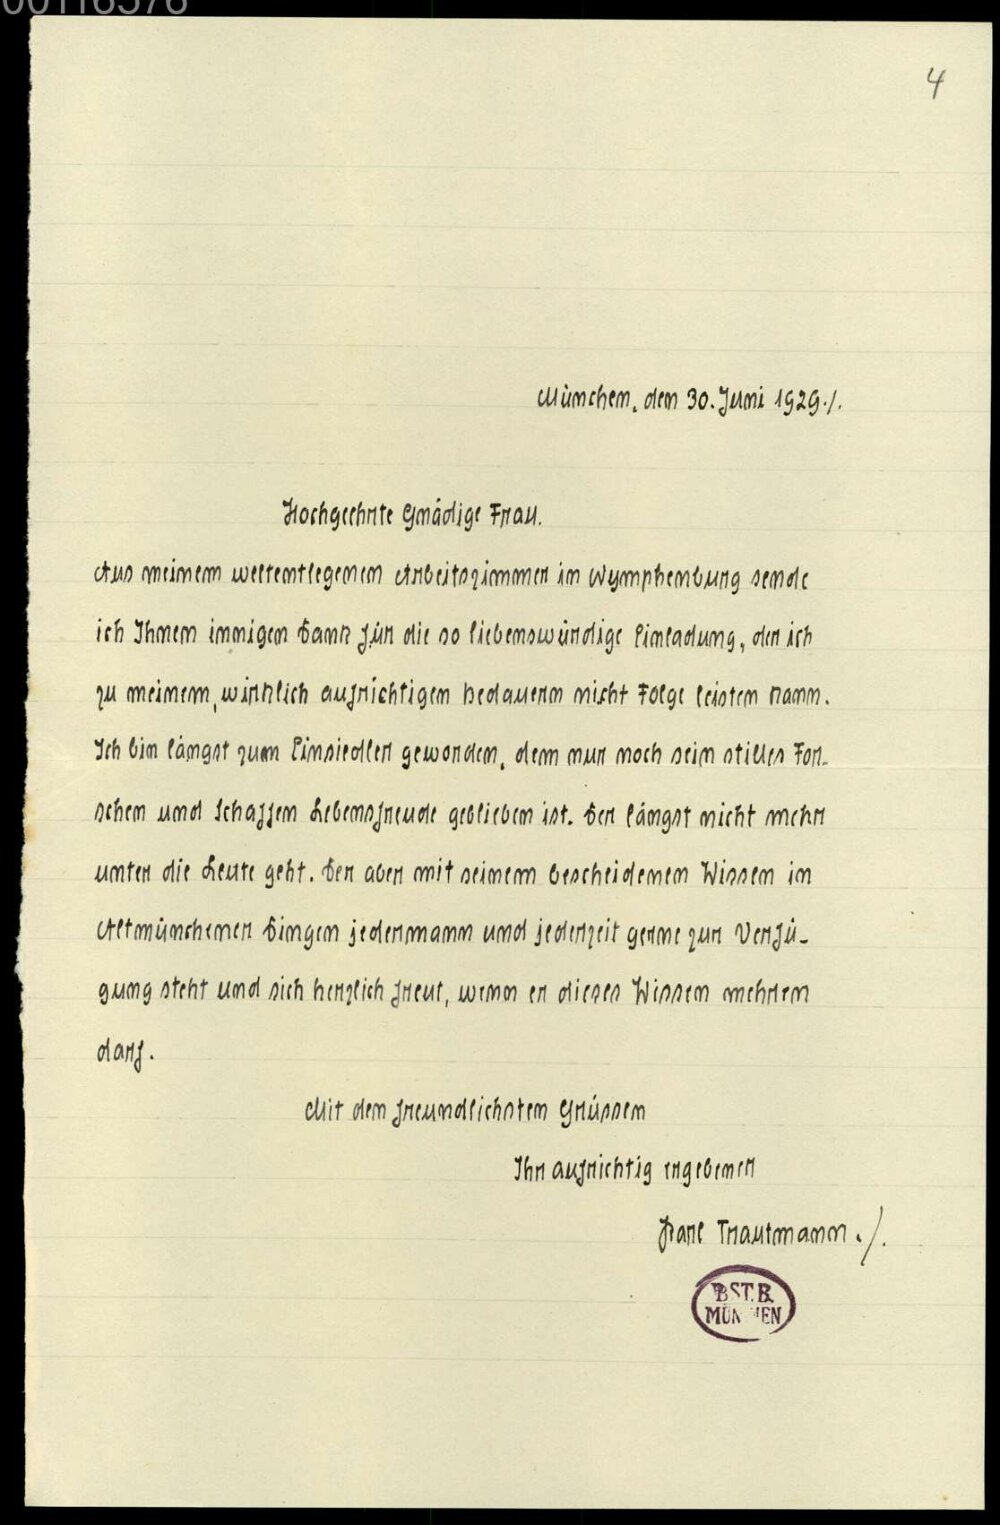 00116578
4
München, den 30. Juni 1929./.
Hochgeehrte Gnädige Frau.
Aus meinem weltentlegenem Arbeitszimmer in Nymphenburg sende
ich Ihnen innigen Dank für die so liebenswürdige Einladung, der ich
zu meinem, wirklich aufrichtigen Bedauern nicht Folge leisten kann.
Ich bin längst zum Einsiedler geworden, dem nur noch sein stilles For-
schen und Schaffen Lebensfreude geblieben ist. Der längst nicht mehr
unter die Leute geht. Der aber mit seinem bescheidenen Wissen in
Altmünchener Dingen jedermann und jederzeit gerne zur Verfü-
gung steht und sich herzlich freut, wenn er dieses Wissen mehren
darf.
Mit den freundlichsten Grüssen
Ihr aufrichtig ergebener
Karl Trautmann ./.
B.ST.B.
MÜNCHEN